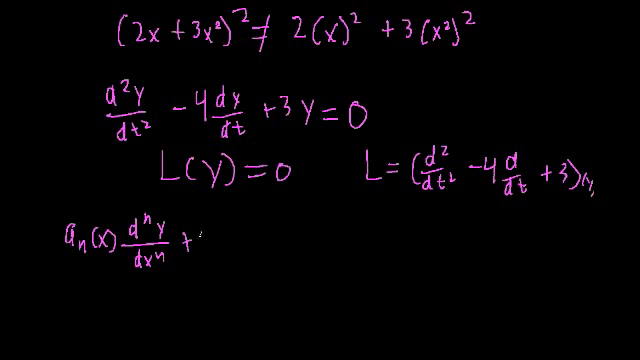 (2x + 3x²)² ≠ 2(x)² + 3(x²)²
d²y/dt² - 4 dy/dt + 3y = 0
L(y) = 0 L = (d²/dt² - 4 d/dt + 3)(y)
aₙ(x) dⁿy/dxⁿ +